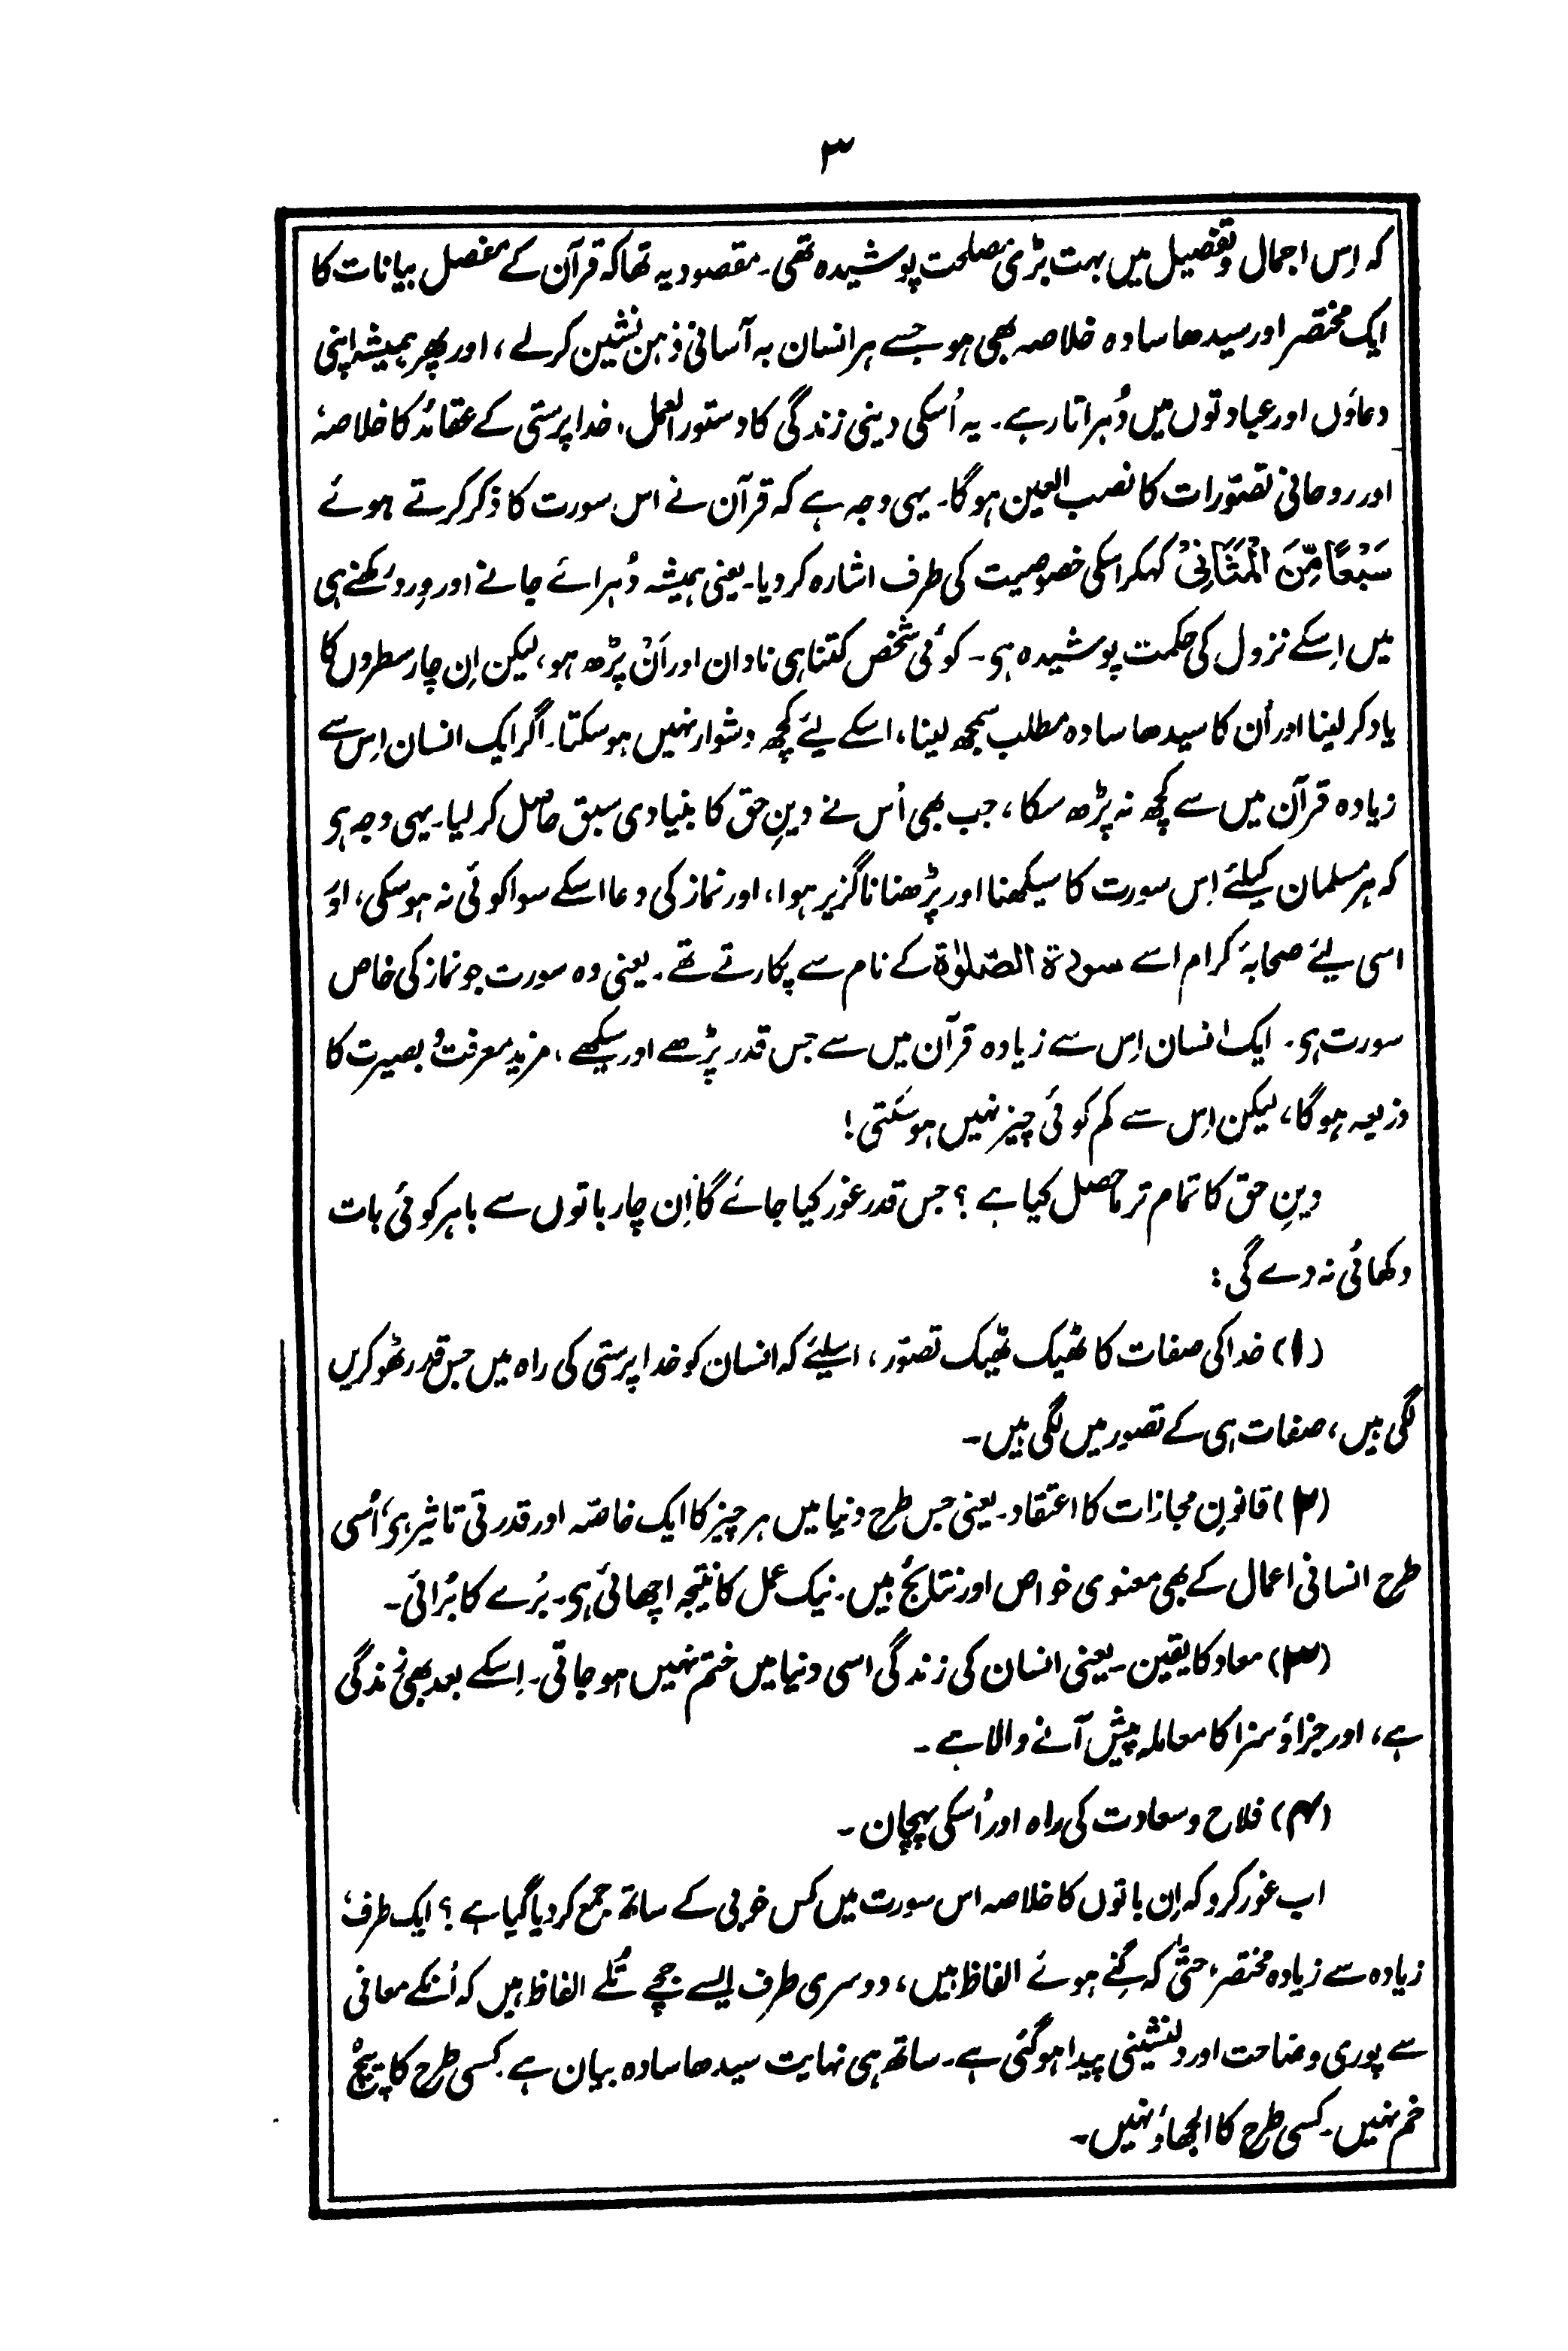 ۳
کہ اِس اجمال و تفصیل میں بہت بڑی مصلحت پوشیدہ تھی۔ مقصود یہ تھا کہ قرآن کے مفصل بیانات کا
ایک مختصر اور سیدھا سادہ خلاصہ بھی ہو جسے ہر انسان بہ آسانی ذہن نشین کرلے، اور پھر ہمیشہ اپنی
دعاؤں اور عبادتوں میں دُہراتا رہے۔ یہ اُسکی دینی زندگی کا دستور العمل، خدا پرستی کے عقائد کا خلاصہ،
اور روحانی تصوّرات کا نصب العین ہوگا۔ یہی وجہ ہے کہ قرآن نے اس سورت کا ذکر کرتے ہوئے
سَبْعًا مِّنَ الْمَثَانِیْ کہکر اسکی خصوصیت کی طرف اشارہ کردیا۔ یعنی ہمیشہ دُہرائے جانے اور وِرد رکھنے ہی
میں اِسکے نزول کی حکمت پوشیدہ ہی۔ کوئی شخص کتنا ہی نادان اور اَنْ پڑھ ہو، لیکن اِن چار سطروں کا
یاد کرلینا اور اُن کا سیدھا سادہ مطلب سمجھ لینا، اسکے لیئے کچھ دشوار نہیں ہوسکتا۔ اگر ایک انسان اِس سے
زیادہ قرآن میں سے کچھ نہ پڑھ سکا، جب بھی اُس نے دینِ حق کا بنیادی سبق حاصل کر لیا۔ یہی وجہ ہی
کہ ہر مسلمان کیلئے اِس سورت کا سیکھنا اور پڑھنا ناگزیر ہوا، اور نماز کی دعا اسکے سوا کوئی نہ ہوسکی، اور
اسی لیئے صحابۂ کرام اسے سورۃ الصّلوٰۃ کے نام سے پکارتے تھے۔ یعنی وہ سورت جو نماز کی خاص
سورت ہی۔ ایک انسان اِس سے زیادہ قرآن میں سے جس قدر پڑھے اور سیکھے، مزید معرفت و بصیرت کا
ذریعہ ہوگا، لیکن اِس سے کم کوئی چیز نہیں ہوسَکتی!
دینِ حق کا تمام تر ماحصل کیا ہے؟ جس قدر غور کیا جائے گا اِن چار باتوں سے باہر کوئی بات
دکھائی نہ دے گی:
(۱) خدا کی صفات کا ٹھیک ٹھیک تصوّر، اسلیئے کہ انسان کو خدا پرستی کی راہ میں جس قدر ٹھوکریں
لگی ہیں، صفات ہی کے تصور میں لگی ہیں۔
(۲) قانونِ مجازات کا اعتقاد۔ یعنی جس طرح دنیا میں ہر چیز کا ایک خاصّہ اور قدرتی تاثیر ہی، اُسی
طرح انسانی اعمال کے بھی معنوی خواص اور نتائج ہیں۔ نیک عمل کا نتیجہ اچھائی ہی۔ بُرے کا بُرائی۔
(۳) معاد کا یقین۔ یعنی انسان کی زندگی اسی دنیا میں ختم نہیں ہوجاتی۔ اِسکے بعد بھی زندگی
ہے، اور جزاؤ سزا کا معاملہ پیش آنے والا ہے۔
(۴) فلاح و سعادت کی راہ اور اُسکی پہچان۔
اب غور کرو کہ اِن باتوں کا خلاصہ اس سورت میں کس خوبی کے ساتھ جمع کردیا گیا ہے؟ ایک طرف
زیادہ سے زیادہ مختصر، حتّٰی کہ گِنے ہوئے الفاظ ہیں، دوسری طرف ایسے جچے تُلے الفاظ ہیں کہ اُنکے معانی
سے پوری وضاحت اور دلنشینی پیدا ہوگئی ہے۔ ساتھ ہی نہایت سیدھا سادہ بیان ہے۔ کسی طرح کا پیچ و
خم نہیں۔ کسی طرح کا الجھاؤ نہیں۔